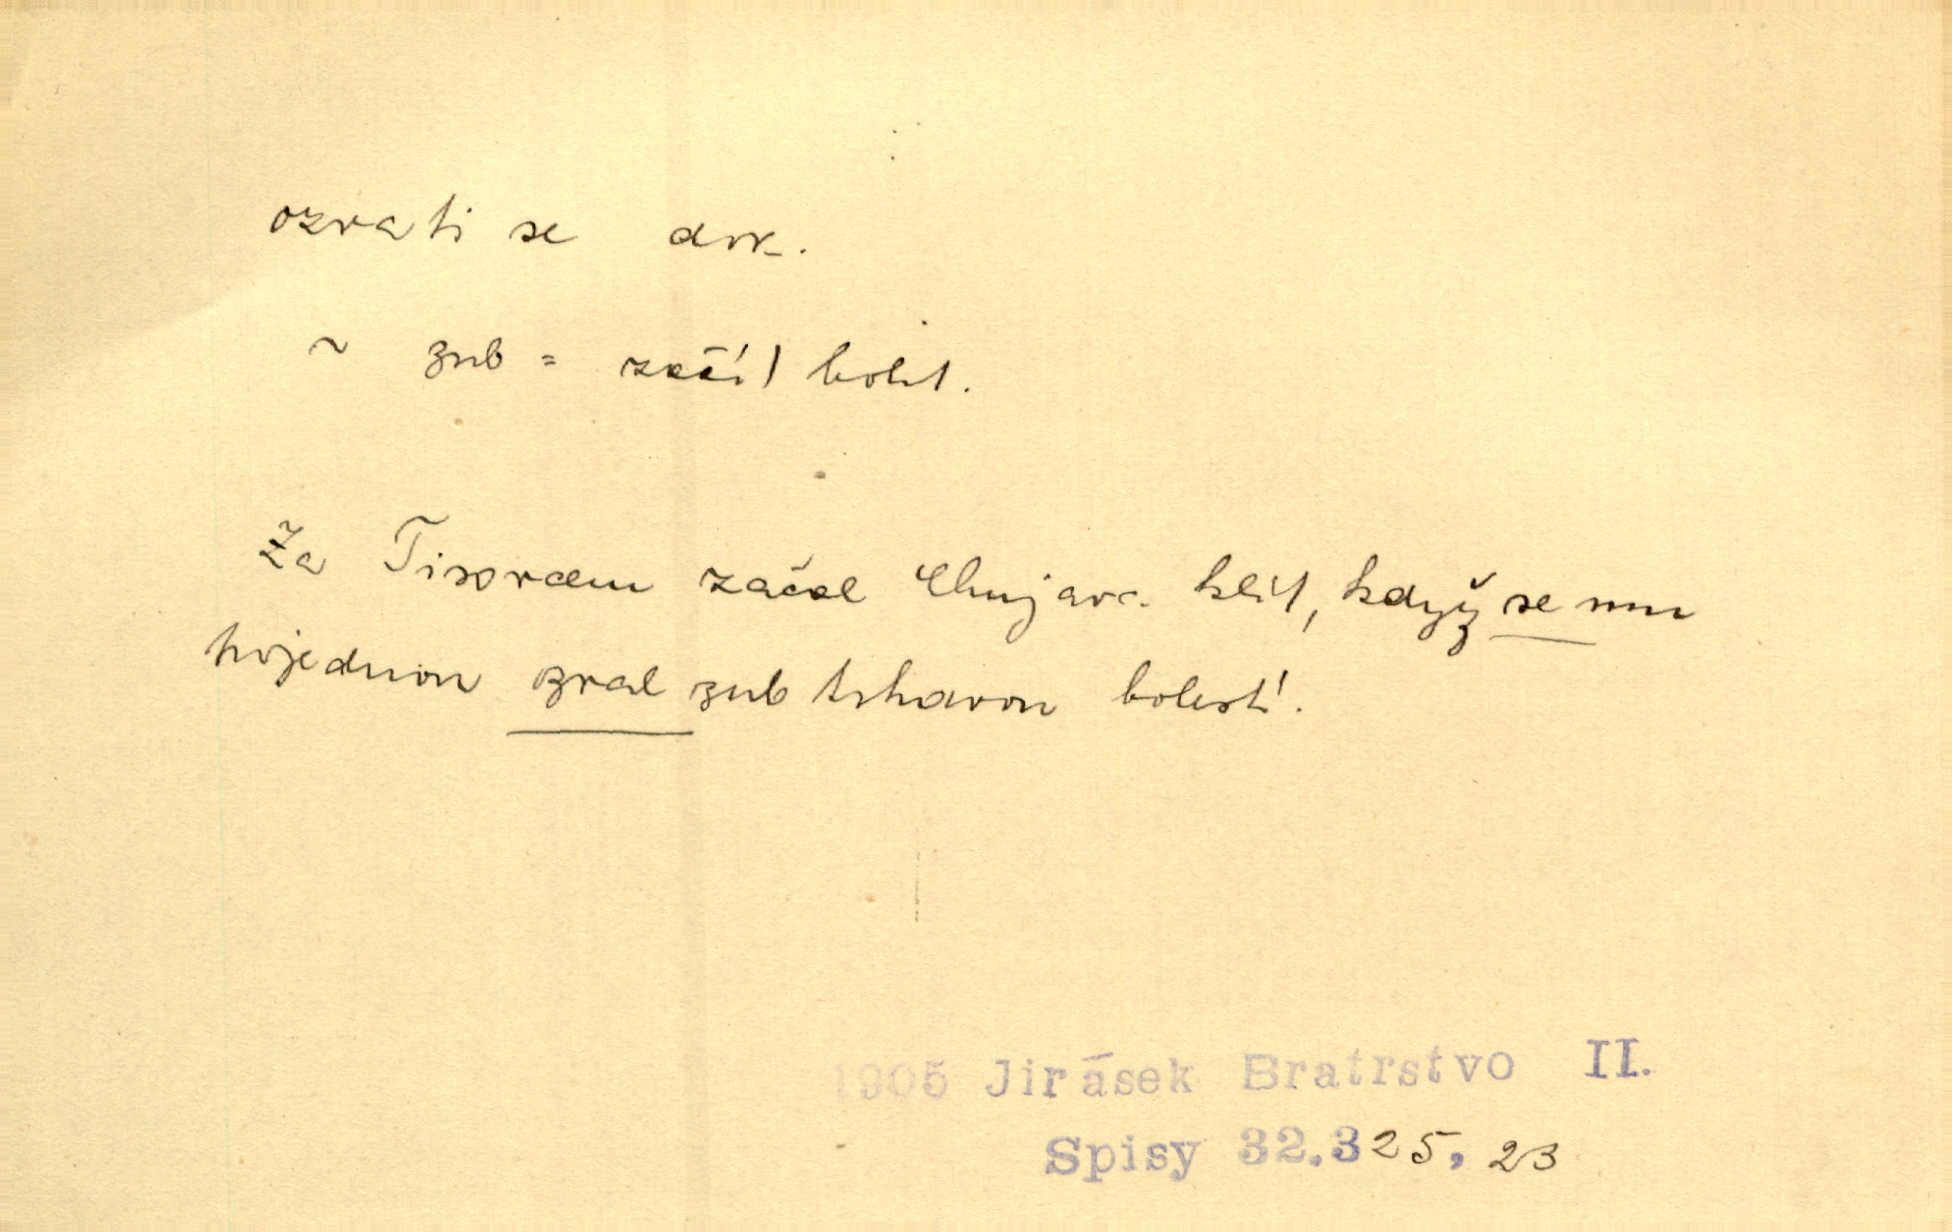 ozvati se dok.
~ zub = začít bolet.
Za Tisovcem začal Chujava klít, když se mu
pojednou ozval zub trhavou bolestí.
1905 Jirásek Bratrstvo II.
Spisy 32.325, 23